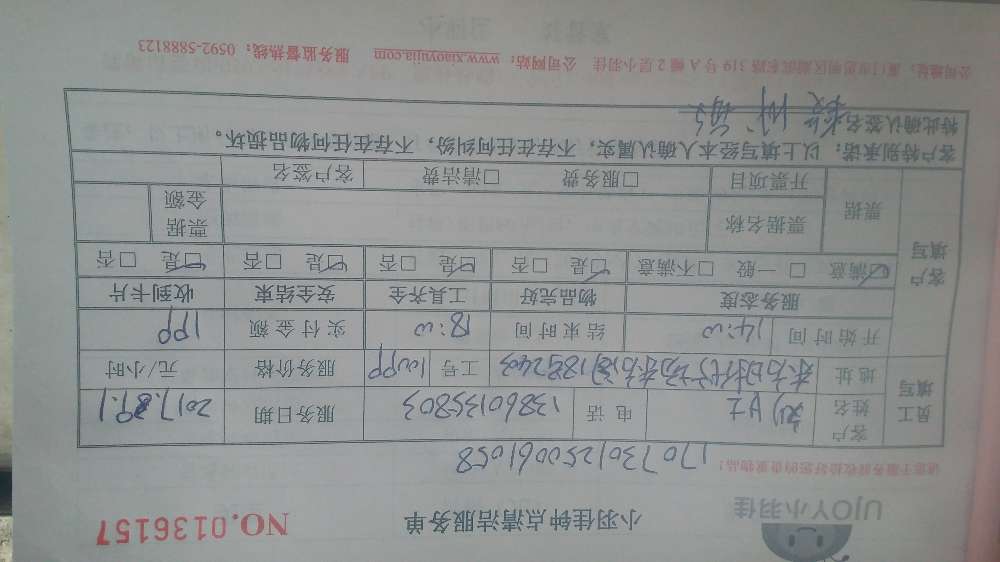 UJOY小羽佳
小羽佳钟点清洁服务单
NO.0136157
请您于服务前收拾好您的贵重物品！
1707301250061058
员工填写
客户姓名 刘女士 电话 13860135803 服务日期 2017.8.9.1
地址 18号2403 工号 服务价格 元/小时
开始时间 14:00 结束时间 18:00 实付金额
客户填写
服务态度 物品完好 工具齐全 安全结束 收到卡片
☑满意 □一般 □不满意 ☑是 □否 ☑是 □否 ☑是 □否 ☑是 □否
票据 票据名称 票据金额
开票项目 □服务费 □清洁费 客户签名
客户特别承诺：以上填写经本人确认，不存在任何纠纷，不存在任何物品损坏。
特此确认签名
公司地址：厦门市思明区湖滨东路319号A幢2层小羽佳 公司网站：www.xiaoyujia.com 服务监督热线：0592-5888123